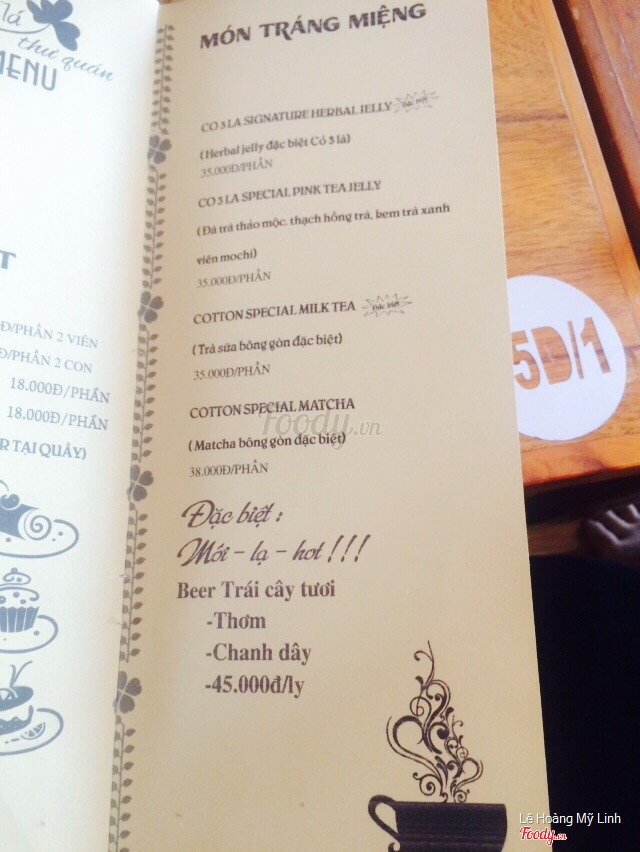 lá
thư quán
MENU
T
Đ/PHẦN 2 VIÊN
Đ/PHẦN 2 CON
18.000Đ/PHẦN
18.000Đ/PHẦN
R TẠI QUẦY)
MÓN TRÁNG MIỆNG
CO 3 LA SIGNATURE HERBAL JELLY Đặc biệt
(Herbal jelly đặc biệt Cỏ 3 lá)
35.000Đ/PHẦN
CO 3 LA SPECIAL PINK TEA JELLY
(Đá trà thảo mộc, thạch hồng trà, kem trà xanh
viên mochi)
35.000Đ/PHẦN
COTTON SPECIAL MILK TEA Đặc biệt
(Trà sữa bông gòn đặc biệt)
35.000Đ/PHẦN
COTTON SPECIAL MATCHA
(Matcha bông gòn đặc biệt)
38.000Đ/PHẦN
Đặc biệt :
Mới - lạ - hot !!!
Beer Trái cây tươi
-Thơm
-Chanh dây
-45.000đ/ly
5D/1
Foody.vn
Lê Hoàng Mỹ Linh
Foody.vn